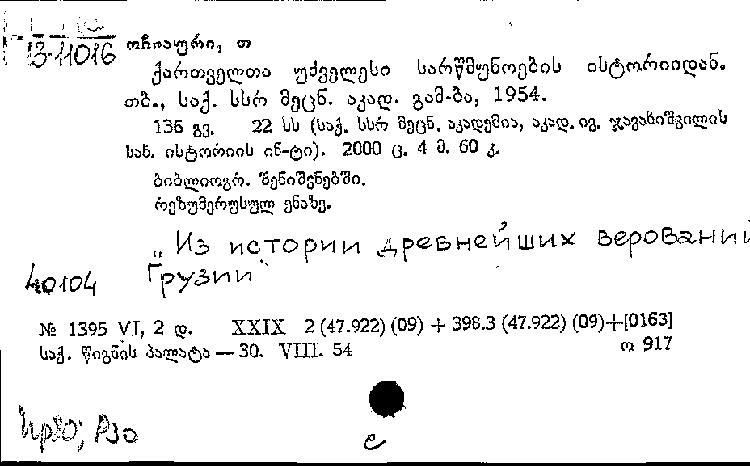 13-11016
ოჩიაური, თ
ქართველთა უძველესი სარწმუნოების ისტორიიდან.
თბ., საქ. სსრ მეცნ. აკად. გამ-ბა, 1954.
136 გვ. 22 სს (საქ. სსრ მეცნ. აკადემია, აკად. ივ. ჯავახიშვილის
სახ. ისტორიის ინ-ტი). 2000 ც. 4 მ. 60 კ.
ბიბლიოგრ. შენიშვნებში.
რეზუმე რუსულ ენაზე.
„Из истории древнейших верований
40104 Грузии"
№ 1395 VI, 2 დ. XXIX 2 (47.922) (09) + 398.3 (47.922) (09)+[0163]
საქ. წიგნის პალატა — 30. VIII. 54 ო 917
e